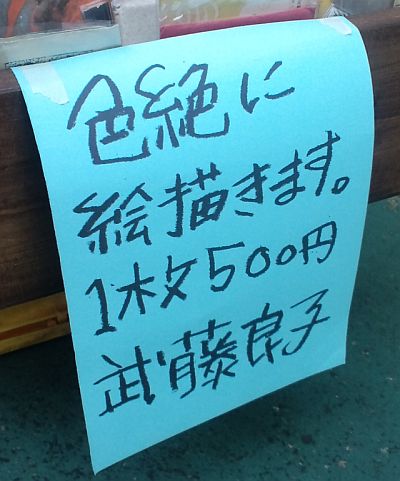 色絶に
絵描きます。
1枚500円
武藤良子